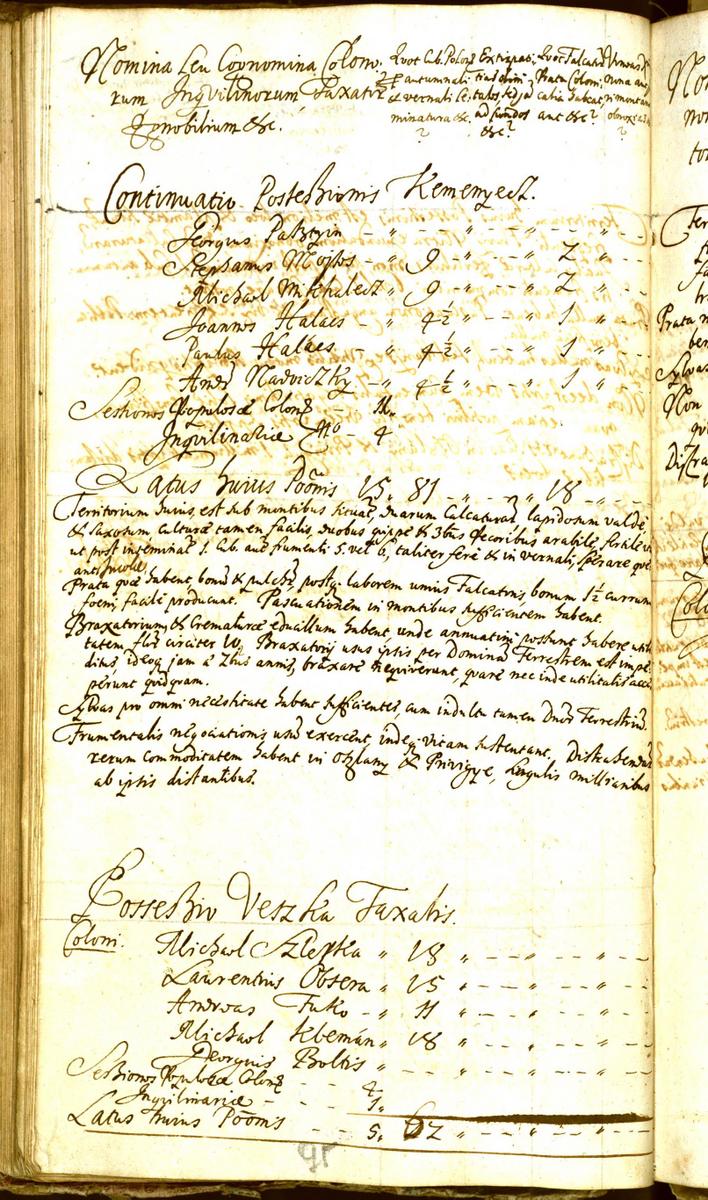 Nomina Seu Cognomina Colono-
rum Inqvilinorum Taxatr
Ignobilium &c.
Quot Cub. Poson
autumnali
& vernali Se-
minatura &c.
?
Extirpati-
ad fundos
&c?
Quot Falcator
Prata Coloni-
calia falcat
aut &c?
?
Continuatio Possessionis Kemenyecz.
Georgius Paksyin - „ - - „ - - „ - - „ - -
Stephanus Mojtos - „ 9 - „ - - „ 2 „ - -
Michael Michalecz „ 9 - „ - - „ 2 „ - -
Joannes Halács - „ 4½ „ - - „ 1 „ - -
Paulus Halács - „ 4½ „ - - „ 1 „ - -
Andr Nadviczky - „ 4½ „ - - „ 1 „ - -
Sessiones Populosæ Colon - 11„
Inqvilinariæ - 4
Latus huius Poõnis 15„ 81 „ - - „ - - „ 18 „ - -
Territorium huius, est sub montibus situat, duarum Calcaturar, lapidosum valde
& saxosum, culturæ tamen facilis, duobus quippe & 3bus Pecoribus arabile, fertile
ut post inseminat 1. Cub. aut frumenti 5. vel 6, taliter fere & in vernali, sperare que-
ant Incolæ
Prata quæ habent, bona & pulchr, postq laborem unius Falcatoris, bonum 1½ currum
foeni, facile producunt. Pascuationem in montibus sufficientem habent.
Braxatorium, & Crematuræ educillum habent, unde annuatim possunt habere utili-
tatem, flor circiter Braxatorij usus ipsis per Dominam Terrestrem est impe-
ditus, ideoq jam a 2bus annis, braxare nequiverunt, quare nec inde utilitatis acce-
perunt quidquam.
Sylvas pro omni necessitate habent sufficientes, cum indultu tamen Dnor Terrestrium.
Frumentalis negociationis usum exercent, indeq vitam sustentant, Distrahendar
rerum commoditatem habent in Oszlany & Privigye, singulis milliaribus
ab ipsis distantibus.
Possessio Veszka Taxalis.
Coloni. Michael Szlepka „ 18 „ - - „ - - „ - -
Laurentius Obsera „ 15 „ - - „ - - „ - -
Andreas Fuko - „ 11 „ - - „ - - „ - -
Michael Kleman „ 18 „ - - „ - - „ - -
Georgius Boltis „ - - „ - - „ - - „ - -
Sessiones Populosæ Colon - - 4
Inqvilinariæ - - - 1„
Latus huius Poõnis - - 5„ 62 „ - - „ - - „ - -